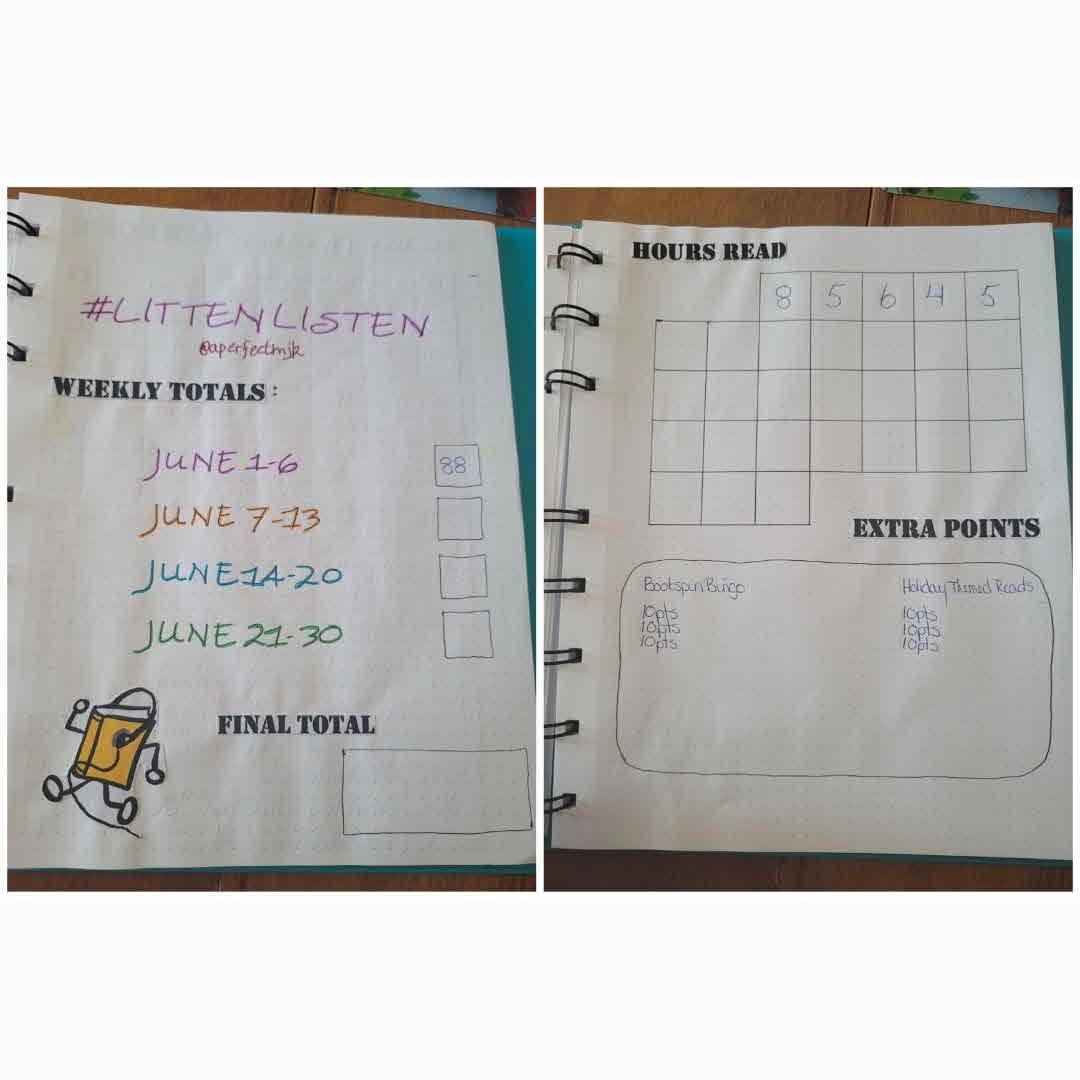 #LITTENLISTEN
@aperfectmjk
WEEKLY TOTALS:
JUNE 1-6 88
JUNE 7-13
JUNE 14-20
JUNE 21-30
FINAL TOTAL
HOURS READ
8 5 6 4 5
EXTRA POINTS
Bookspin Bingo Holiday Themed Reads
10pts 10pts
10pts 10pts
10pts 10pts